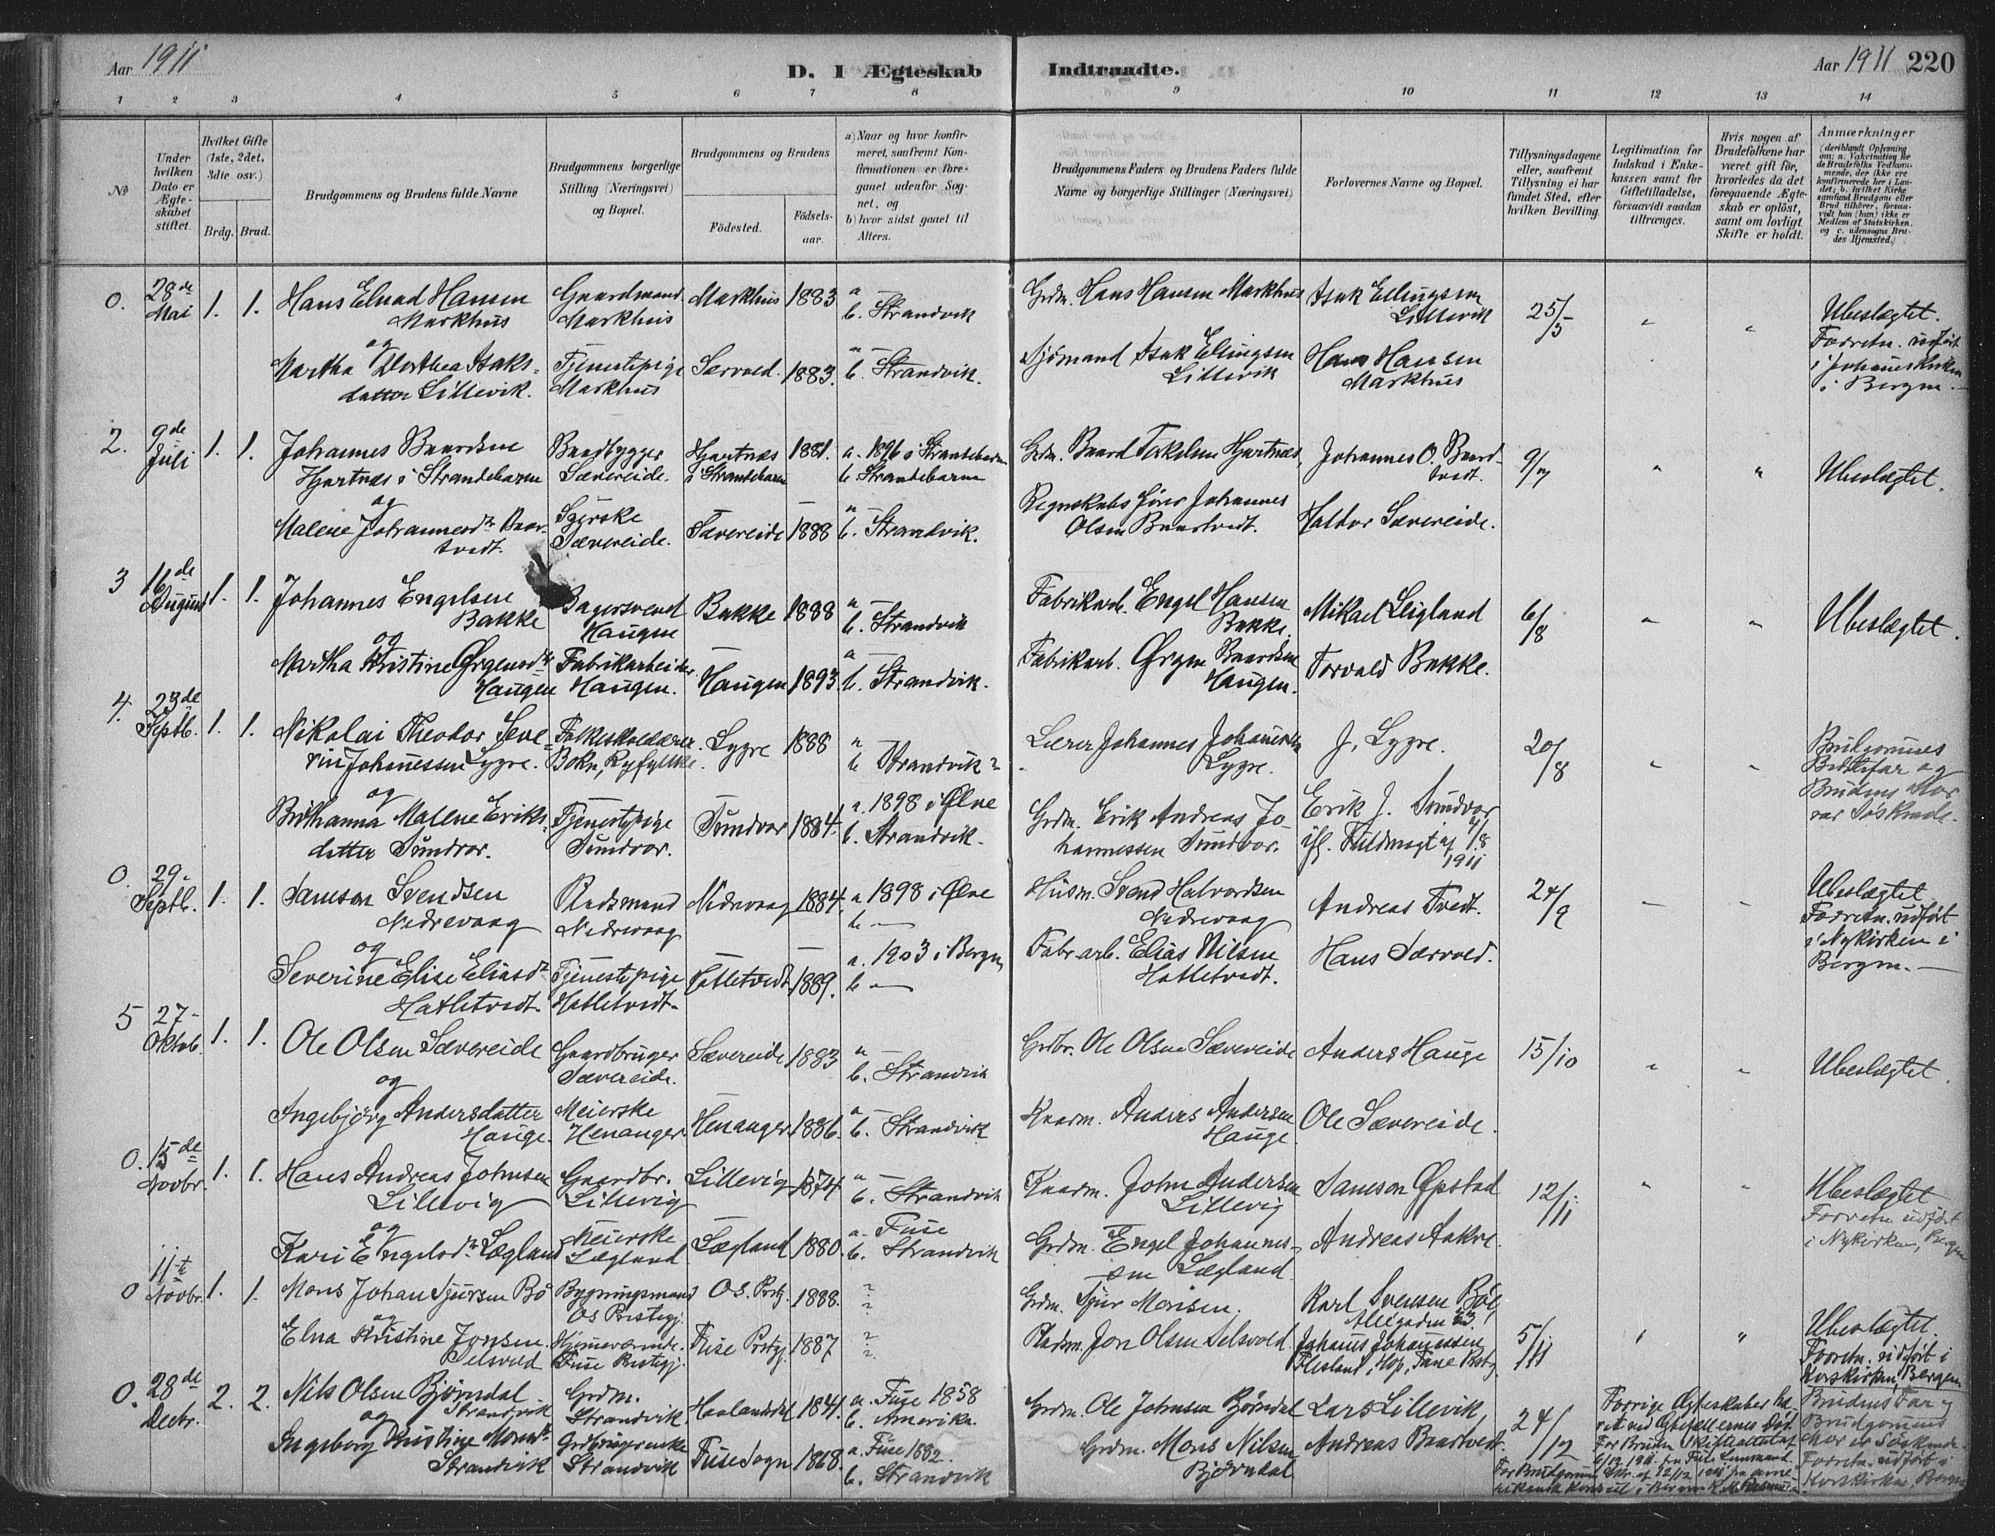 Aar 1911
D. 1 Ægteskab Indtraadte.
Aar 1911 220
1 2 3 4 5 6 7 8 9 10 11 12 13 14
No
Under hvilken Dato er Ægteskabet stiftet.
Hvilket Gifte (1ste, 2det, 3die osv.)
Brdg. Brud.
Brudgommens og Brudens fulde Navne
Brudgommens borgerlige Stilling (Næringsvei) og Bopæl.
Brudgommens og Brudens
Fødested.
Fødselsaar.
a) Naar og hvor konfirmeret, saafremt Konfirmationen er foregaaet udenfor Sognet, og
b) hvor sidst gaaet til Alters.
Brudgommens Faders og Brudens Faders fulde Navne og borgerlige Stillinger (Næringsvei)
Forlovernes Navne og Bopæl.
Tillysningsdagene eller, saafremt Tillysning ei har fundet Sted, efter hvilken Bevilling.
Legitimation for Indskud i Enkekassen samt for Giftetilladelse, forsaavidt saadan tiltrænges.
Hvis nogen af Brudefolkene har været gift før, hvorledes da det foregaaende Ægteskab er opløst, samt om lovligt Skifte er holdt.
Anmærkninger (deriblandt Oplysning om: a. Vakcination for de Brudefolks Vedkommende, der ikke ere konfirmerede her i Landet; b. hvilket Kirkesamfund Brudgom eller Brud tilhører, forsaavidt han (hun) ikke er Medlem af Statskirken, og c. udensogns Brudes Hjemsted.)
0. 28de Mai 1. 1. Hans Elnad Hansen Markhus Gaardmand Markhus Markhus 1883 a — b. Strandvik Grdm. Hans Hansen Markhus Isak Ellingsen Lillevik 25/5 " " Ubeslægtet. Forretn. udført i Johanneskirken i Bergen.
og
Martha Dorthea Isaksdatter Lillevik. Tjenestepige Markhus Særvold 1883. a — b. Strandvik. Sjømand Isak Elingsen Lillevik Hans Hansen Markhus
2. 9de Juli 1. 1. Johannes Baardsen Hjartnæs i Strandebarm Baadbygger Sævereide. Hjartnæs i Strandebarm 1881. a. 1896 i Strandebarm b. Strandebarm Grdm. Baard Terkelsen Hjartnæs, Johannes O. Baardtvedt. 9/7 " " Ubeslægtet.
og
Malene Johannesdtr Baartvedt. Syerske Sævereide. Sævereide 1888 a — b. Strandvik. Regnskabsfører Johannes Olsen Baartvedt. Haldor Sævereide.
3 16de August 1. 1. Johannes Engelsen Bakke Bagersvend Haugen Bakke 1888 a — b. Strandvik Fabrikarb. Engel Hansen Bakke. Mikael Leigland 6/8 " " Ubeslægtet.
og
Martha Kristine Ørgensdtr Haugen Fabrikarbeider Haugen. Haugen 1893. a — b. Strandvik. Fabrikarb. Ørgen Baardsen Haugen. Torvald Bakke.
4. 23de Septb. 1. 1. Nikolai Theodor Severin Johannessen Lygre. Folkeskolelærer Bokn, Ryfylke. Lygre 1888 a — b. Strandvik Lærer Johannes Johannessen Lygre. J. Lygre. 20/8 " " Brudgommens Bestefar og Brudens Mor var Søskende.
og
Brithanna Malene Eriksdatter Sundvor. Tjenestepige Sundvor. Sundvor 1884. a. 1898 i Ølve b. Strandvik. Grdm. Erik Andreas Johannessen Sundvor. Erik J. Sundvor ifl. Fuldmagt af 4/8 1911
0. 29. Septb. 1. 1. Samson Svendsen Nedrevaag Stilling Nedrevaag Nedrevaag 1884. a. 1898 i Ølve b. — Husm. Svend Halvardsen Nedrevaag Andreas Tvedt. 24/9 Ubeslægtet. Forretn. udført i Nykirken i Bergen.
og
Severine Elise Eliasdtr Hatletvedt. Tjenestepige Hatletvedt. Hatletvedt 1889. a. 1903 i Bergen b. — Fabr.arb. Elias Nilsen Hatletvedt. Hans Særvold.
5 27 Oktob. 1. 1. Ole Olsen Sævereide Gaardbruger Sævereide. Sævereide 1883 a — b. Strandvik Grdbr. Ole Olsen Sævereide Anders Hauge 15/10 " " Ubeslægtet.
og
Ingebjörg Andersdatter Hauge. Meierske Henanger. Henanger 1886. a — b. Strandvik Kaarm. Anders Andersen Hauge. Ole Sævereide.
0. 15de Novbr. 1. 1. Hans Andreas Johnsen Lillevig Gaardbr. Lillevig Lillevig 1874. a — b. Strandvik Kaarm. John Andersen Lillevig Samson Øpstad 12/11 " " Ubeslægtet Forretn. udført i Nykirken, Bergen
og
Kari Engelsdtr Lægland Meierske Lægland Lægland 1880. a. Fuse b. Strandvik Grdm. Engel Johannessen Lægland. Andreas Aakre.
0 11te Novbr. 1. 1. Mons Johan Sjursen Bø Bygningsmand Os Prestegj. Os. Prstgj. 1888. ? ? Grdm. Sjur Monsen. Karl Svensen Bøe Allégaden 23. 5/11 " " Ubeslægtet. Forretn. udført i Korskirken, Bergen
og
Elna Kristine Jonsen Selsvold Hjemmeværende. Fuse Prestegj. Fuse Prstgj. 1887 ? ? Pladsm. Jon Olsen Selsvold. Johannes Johannessen Flesland, Hop, Fane Prstg.
0. 28de Decbr. 2. 2. Nils Olsen Bjørndal Strandvik Grdm. Strandvik Haalandsdal 1841. a. Fuse 1858 b. Amerika. Grdm. Ole Johnsen Bjørndal Lars Lillevik, 24/12 Forrige Ægteskaber hævet ved Ægtefællernes Død. For Bruden Skifteattest af 6/12 1911 fra Fuse Lensmand. Brudens Far og Brudgommens Mor er Søskende. Forretn. udført i Korskirken, Bergen
og
Ingeborg Kristine Monsdtr Strandvik Grdbrugerenke Strandvik Fuse Sogn 1868. a. Fuse 1882. b. Strandvik Grdm. Mons Nilsen Bjørndal Andreas Baartvedt. For Brudgommen Erkl. af 22/12 1911 fra amerikansk Konsul i Bergen